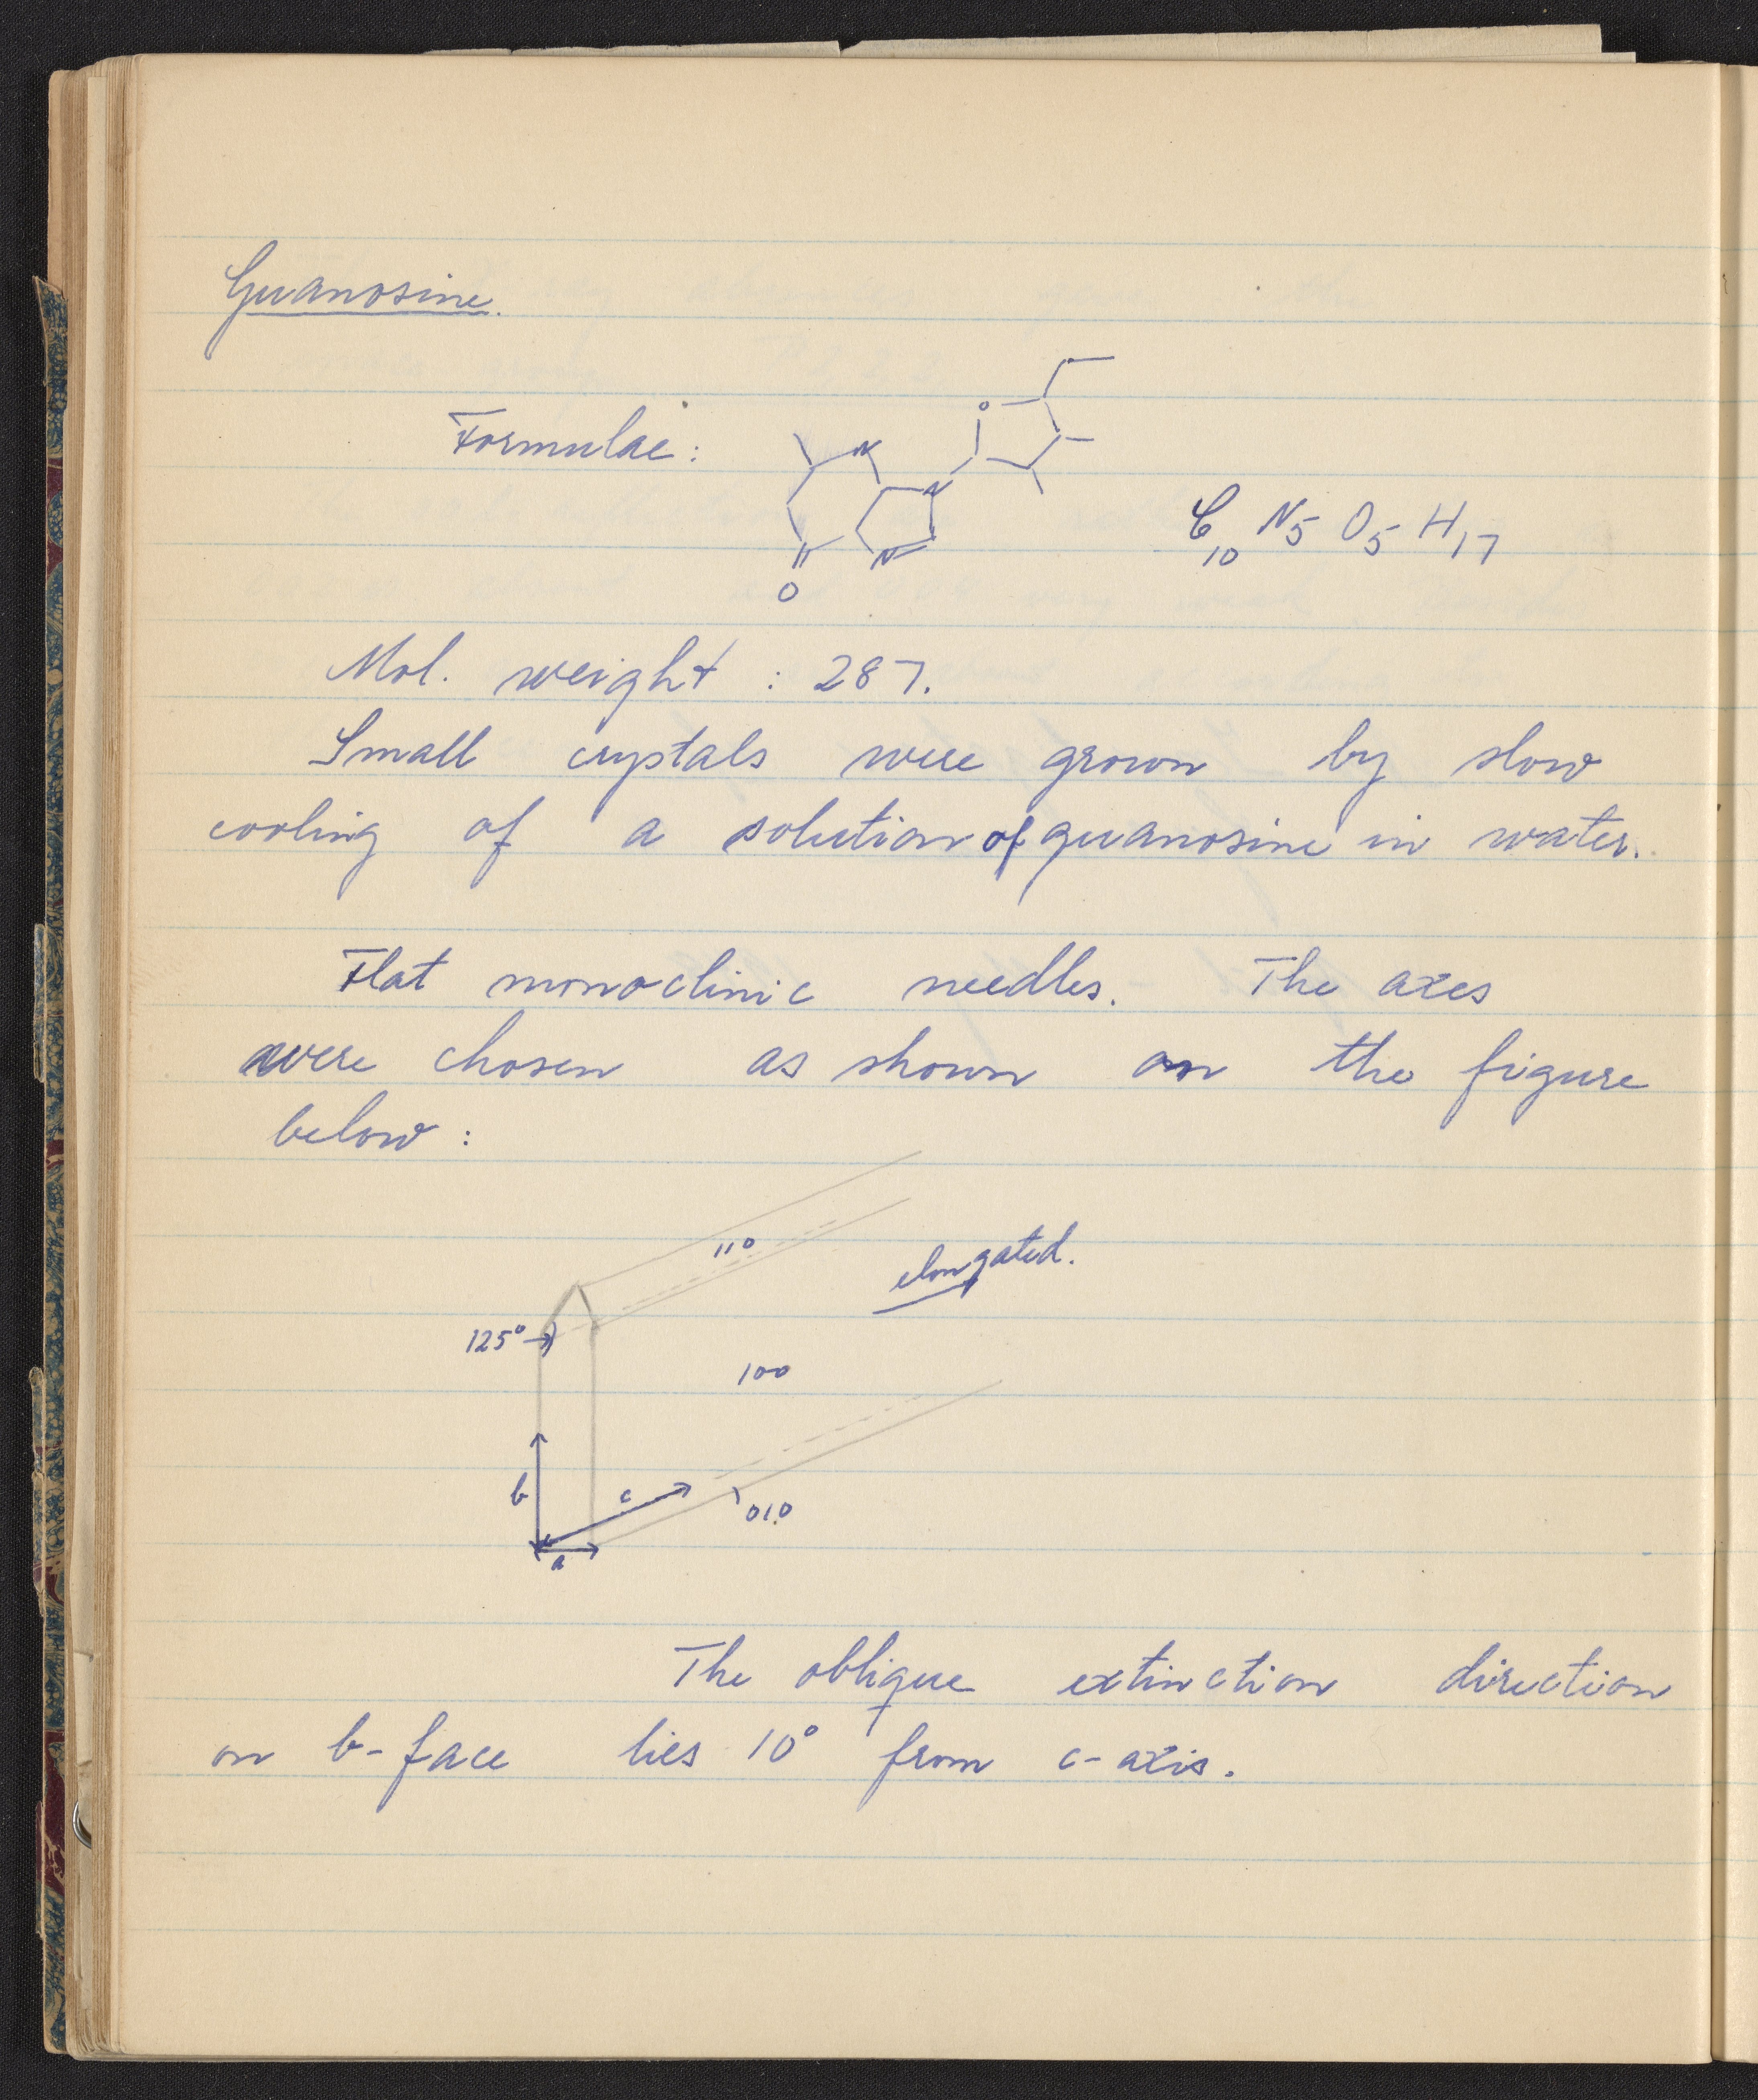 Guanosine.
Formulae:
N
O
N
N
O
C10 N5 O5 H17
Mol. weight : 287.
Small crystals were grown by slow
cooling of a solution of guanosine in water.
Flat monoclinic needles. The axes
were chosen as shown on the figure
below :
110
elongated.
125°
100
b
c
010
a
The oblique extinction direction
on b-face lies 10° from c-axis.